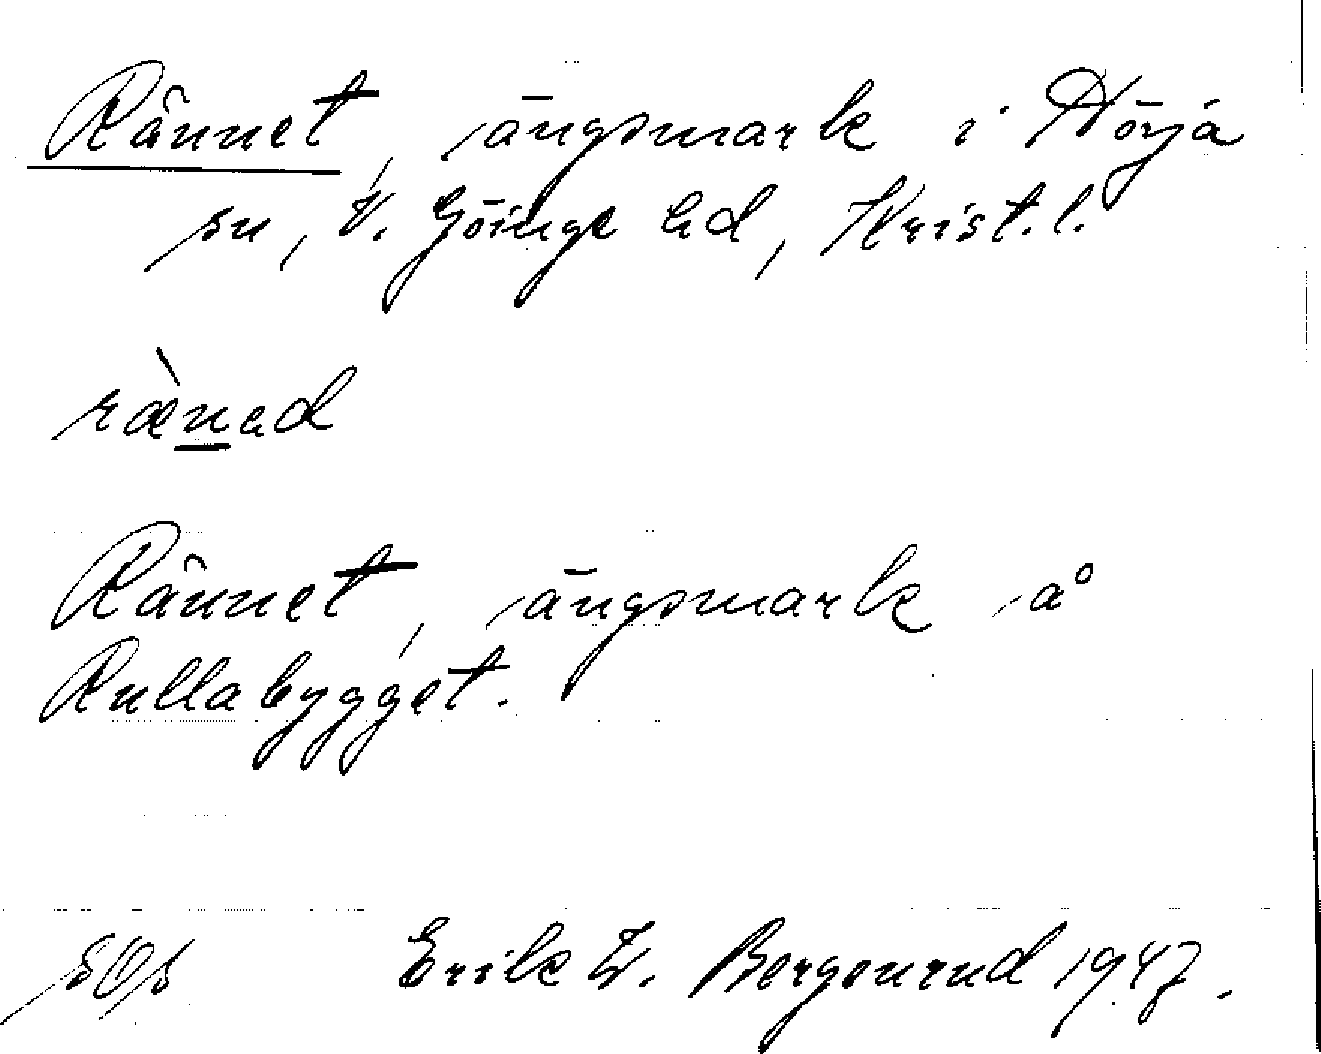 Rännet, ängsmark i Nörja
sn, V. Göinge hd, Krist. l.
rænəd
Rännet, ängsmark å
Rullabygget.
Erik W. Bergenrud 1947.